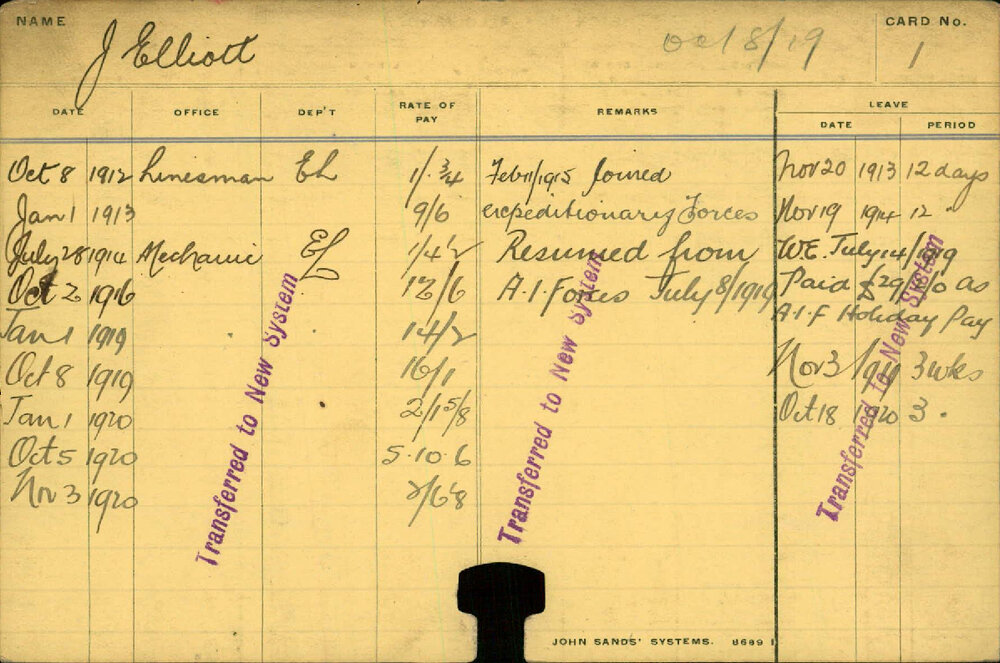 NAME J Elliott Oct 8/19 CARD No. 1
DATE OFFICE DEP'T RATE OF PAY REMARKS LEAVE DATE PERIOD
Oct 8 1912 Linesman EL 1/.3/4 Feb 11/1915 Joined Nov 20 1913 12 days
Jan 1 1913 9/6 expeditionary Forces Nov 19 1914 12 "
July 28 1914 Mechanic EL 1/4½ Resumed from W.E. July 14/1919
Oct 2 1916 12/6 A.I. Forces July 8/1919 Paid as
Jan 1 1919 14/2 A.I.F Holiday Pay
Oct 8 1919 16/1 Nov 3 3 wks
Jan 1 1920 2/1 5/8 Oct 18 1920 3 "
Oct 5 1920 5.10.6
Nov 3 1920 2/6'8
Transferred to New System
Transferred to New System
Transferred to New System
JOHN SANDS' SYSTEMS. 8689 1